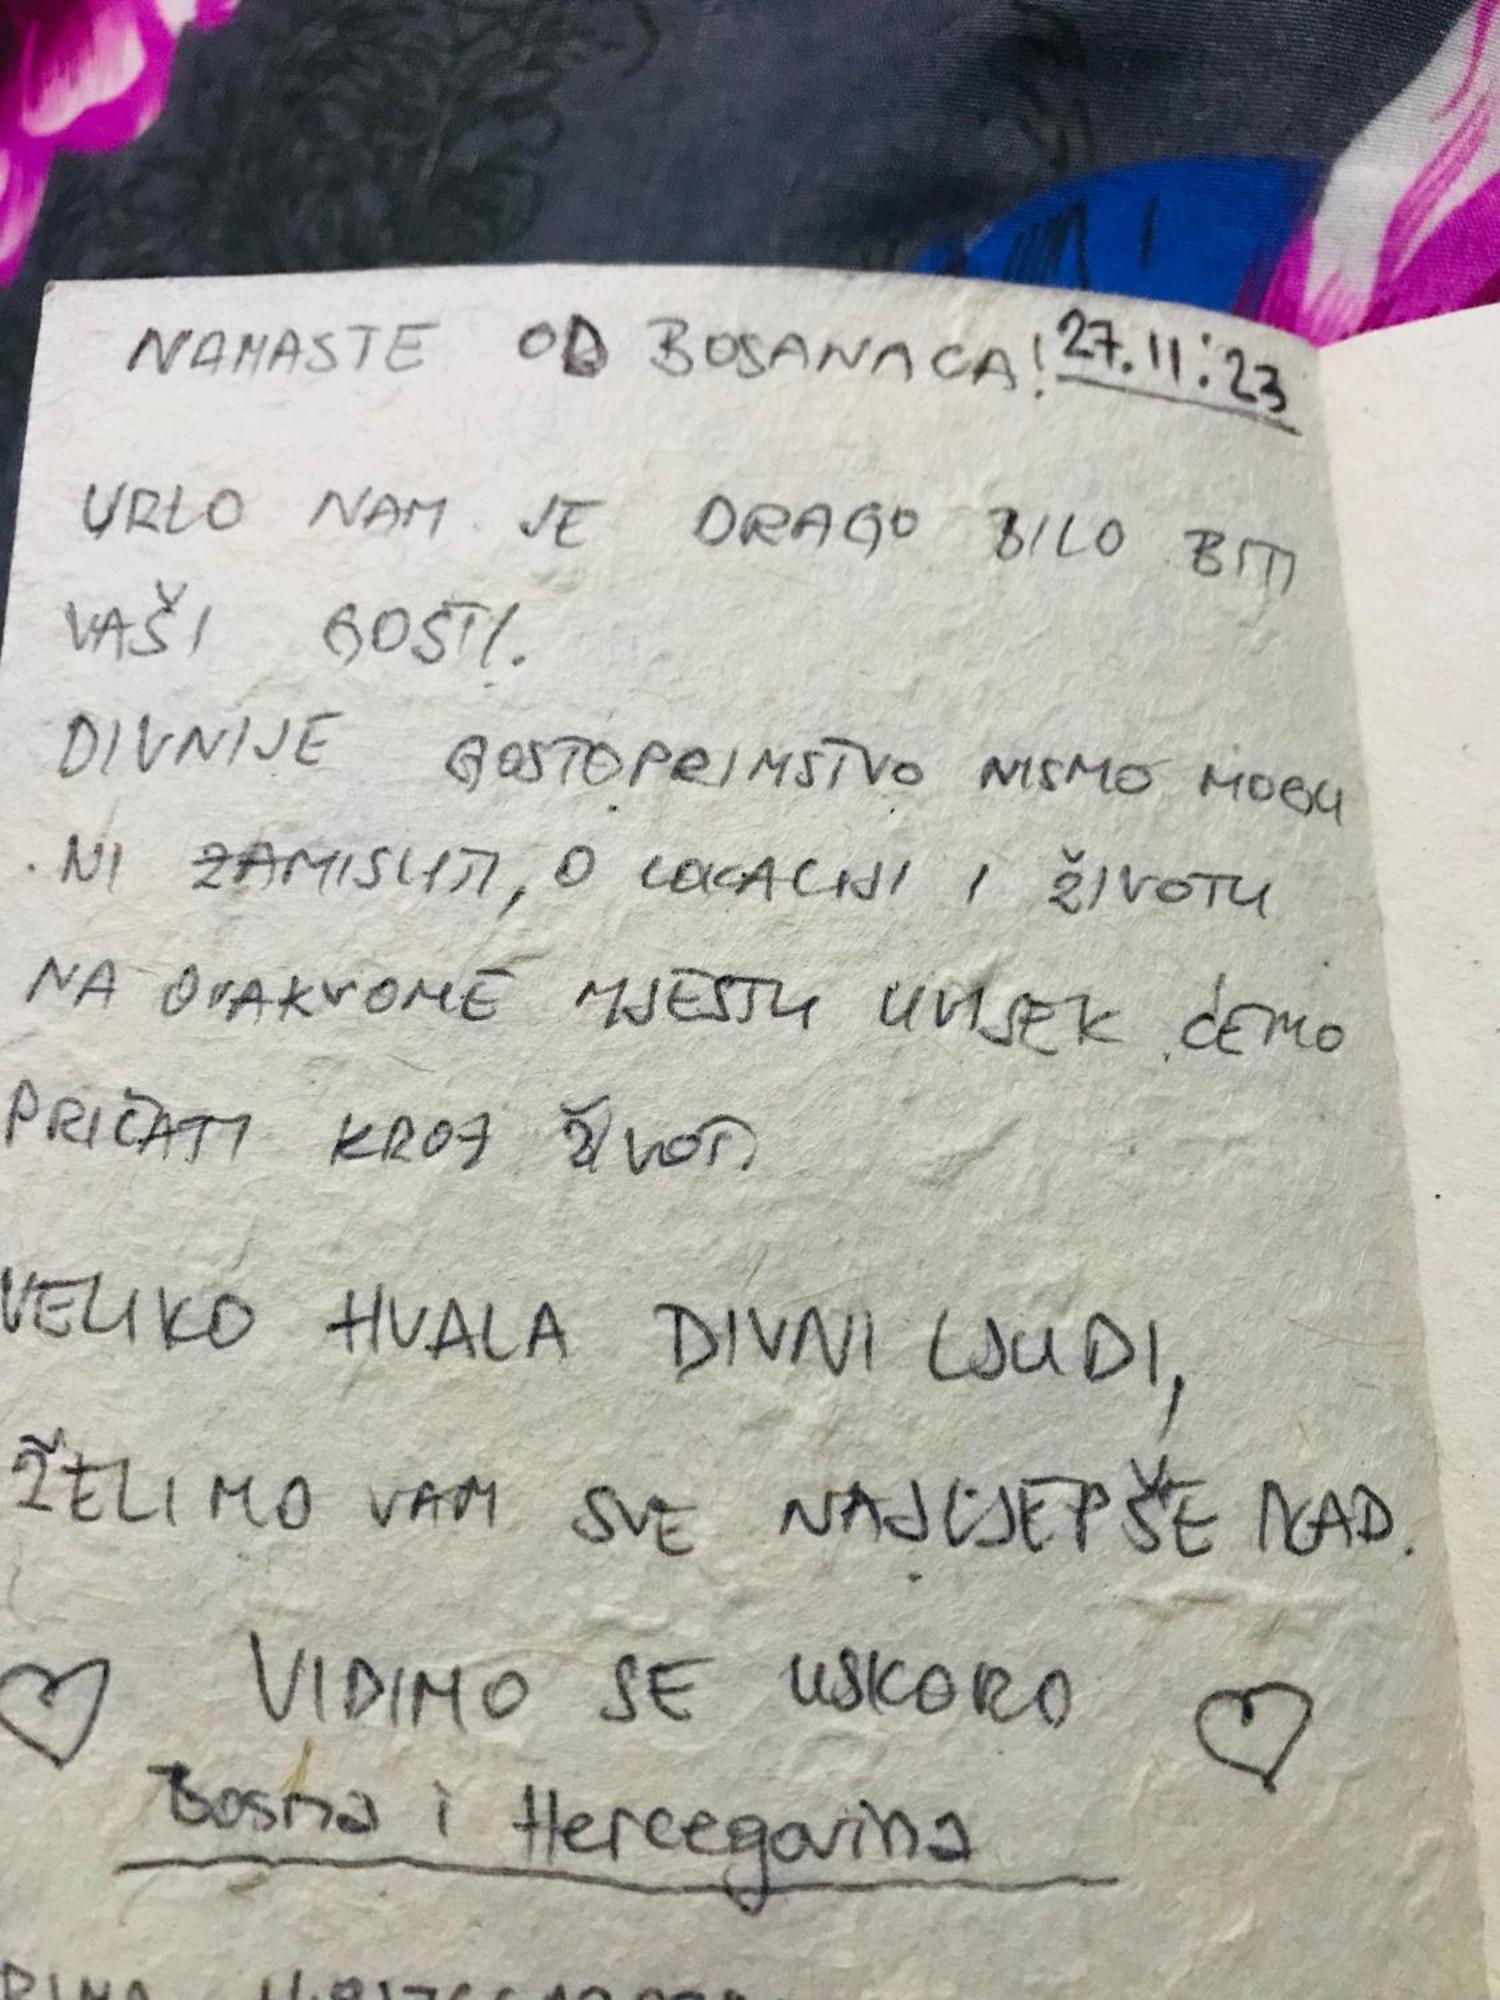 NAMASTE OD BOSANACA! 27.11.'23
VRLO NAM JE DRAGO BILO BITI
VAŠI GOSTI.
DIVNIJE GOSTOPRIMSTVO NISMO MOGLI
NI ZAMISLITI, O LOKACIJI I ŽIVOTU
NA OVAKVOME MJESTU UVIJEK ĆEMO
PRIČATI KROZ ŽIVOT.
VELIKO HVALA DIVNI LJUDI,
ŽELIMO VAM SVE NAJLJEPŠE NAD.
VIDIMO SE USKORO
Bosna i Hercegovina